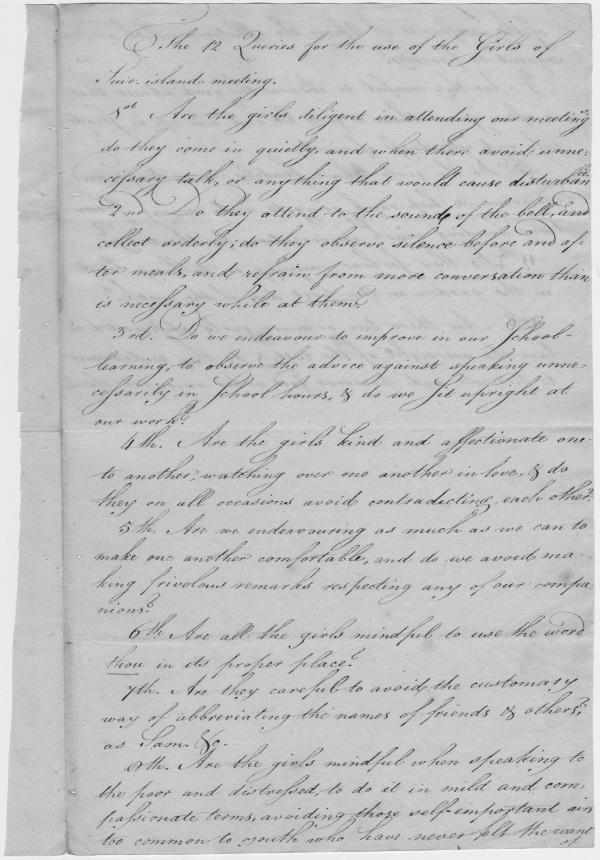 The 12 Queries for the use of the Girls of
Suir-island meeting.
1st Are the girls diligent in attending our meetings
do they come in quietly, and when there avoid unne=
cessary talk, or anything that would cause disturbance
2nd Do they attend to the sound of the bell, and
collect orderly; do they observe silence before and af=
ter meals, and refrain from more conversation than
is necessary while at them?
3rd. Do we endeavour to improve in our School-
learning, to observe the advice against speaking unne=
cessarily in School hours, & do we sit upright at
our work?
4th. Are the girls kind and affectionate one
to another, watching over one another in love, & do
they on all occasions avoid contradicting each other?
5th. Are we endeavouring as much as we can to
make one another comfortable, and do we avoid ma=
king frivolous remarks respecting any of our compa=
nions?
6th Are all the girls mindful to use the word
thou in its proper place?
7th. Are they careful to avoid the customary
way of abbreviating the names of friends & others,
as Sam. &c.
8th. Are the girls mindful when speaking to
the poor and distressed, to do it in mild and com=
passionate terms, avoiding those self-important airs
too common to youth who have never felt the want
of